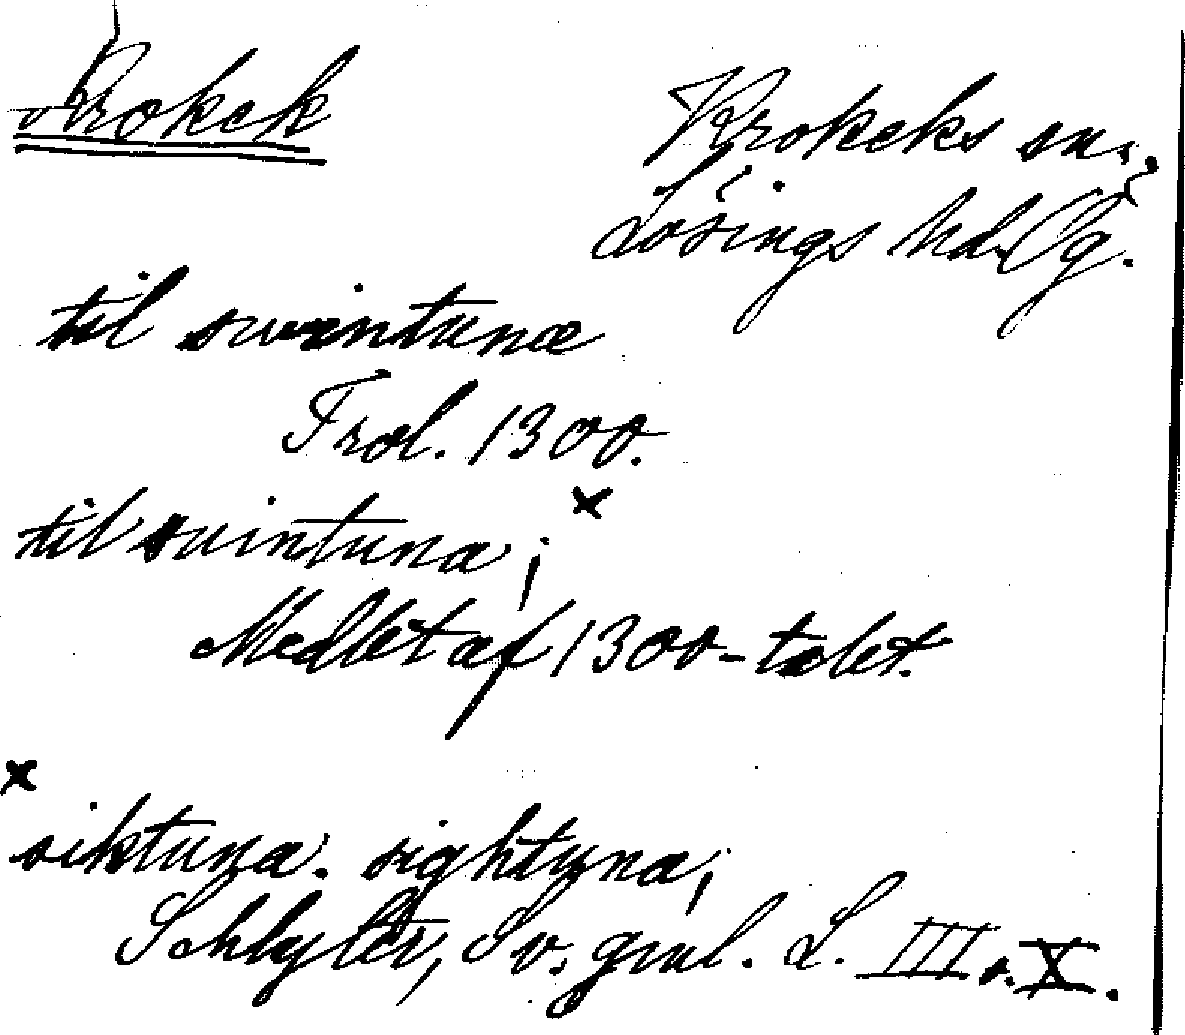 Krokek
Krokeks sn.,
Lösings hd. Ög.
til suintunæ
Frol. 1300.
til suintuna ×
Medlet af 1300-talet.
× siktuna. sightuna,
Schlyter, Sv. gml. L. III s. X.